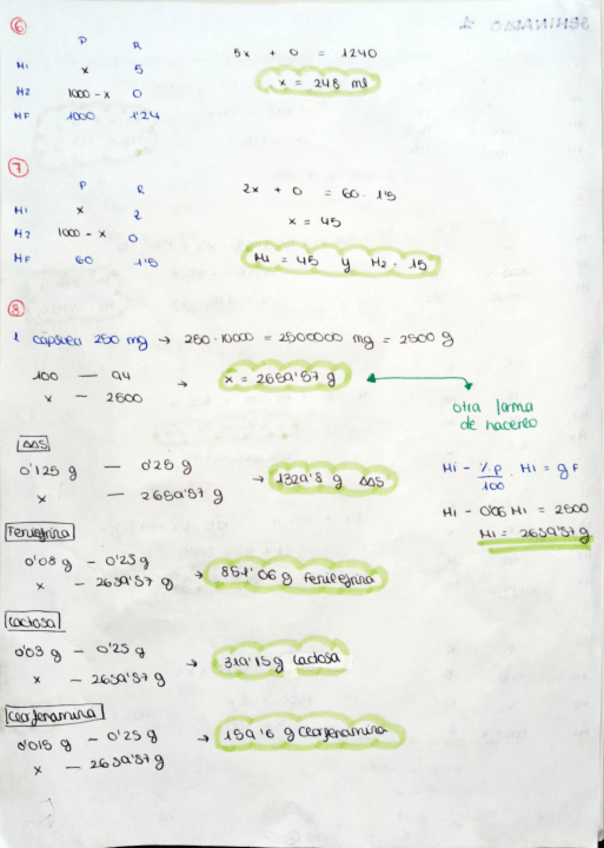 SEMINARIO 1
6
P R
5x + 0 = 1240
M1 x 5
x = 248 ml
M2 1000 - x 0
MF 1000 1'24
7
P R
2x + 0 = 60 · 1'5
M1 x 2
x = 45
M2 1000 - x 0
MF 60 1'5
M1 = 45 y M2 = 15
8
1 cápsula 250 mg → 250·10000 = 2500000 mg = 2500 g
100 — 94
x — 2500
→ x = 2659'57 g
otra forma
de hacerlo
AAS
0'125 g — 0'25 g
x — 2659'57 g
→ 1329'8 g AAS
Mi - %p/100 · Mi = g F
Mi - 0'06 Mi = 2500
Mi = 2659'57 g
Fenilefrina
0'08 g — 0'25 g
x — 2659'57 g
→ 851'06 g Fenilefrina
Lactosa
0'03 g — 0'25 g
x — 2659'57 g
→ 319'15 g Lactosa
Clorfenamina
0'015 g — 0'25 g
x — 2659'57 g
→ 159'6 g Clorfenamina